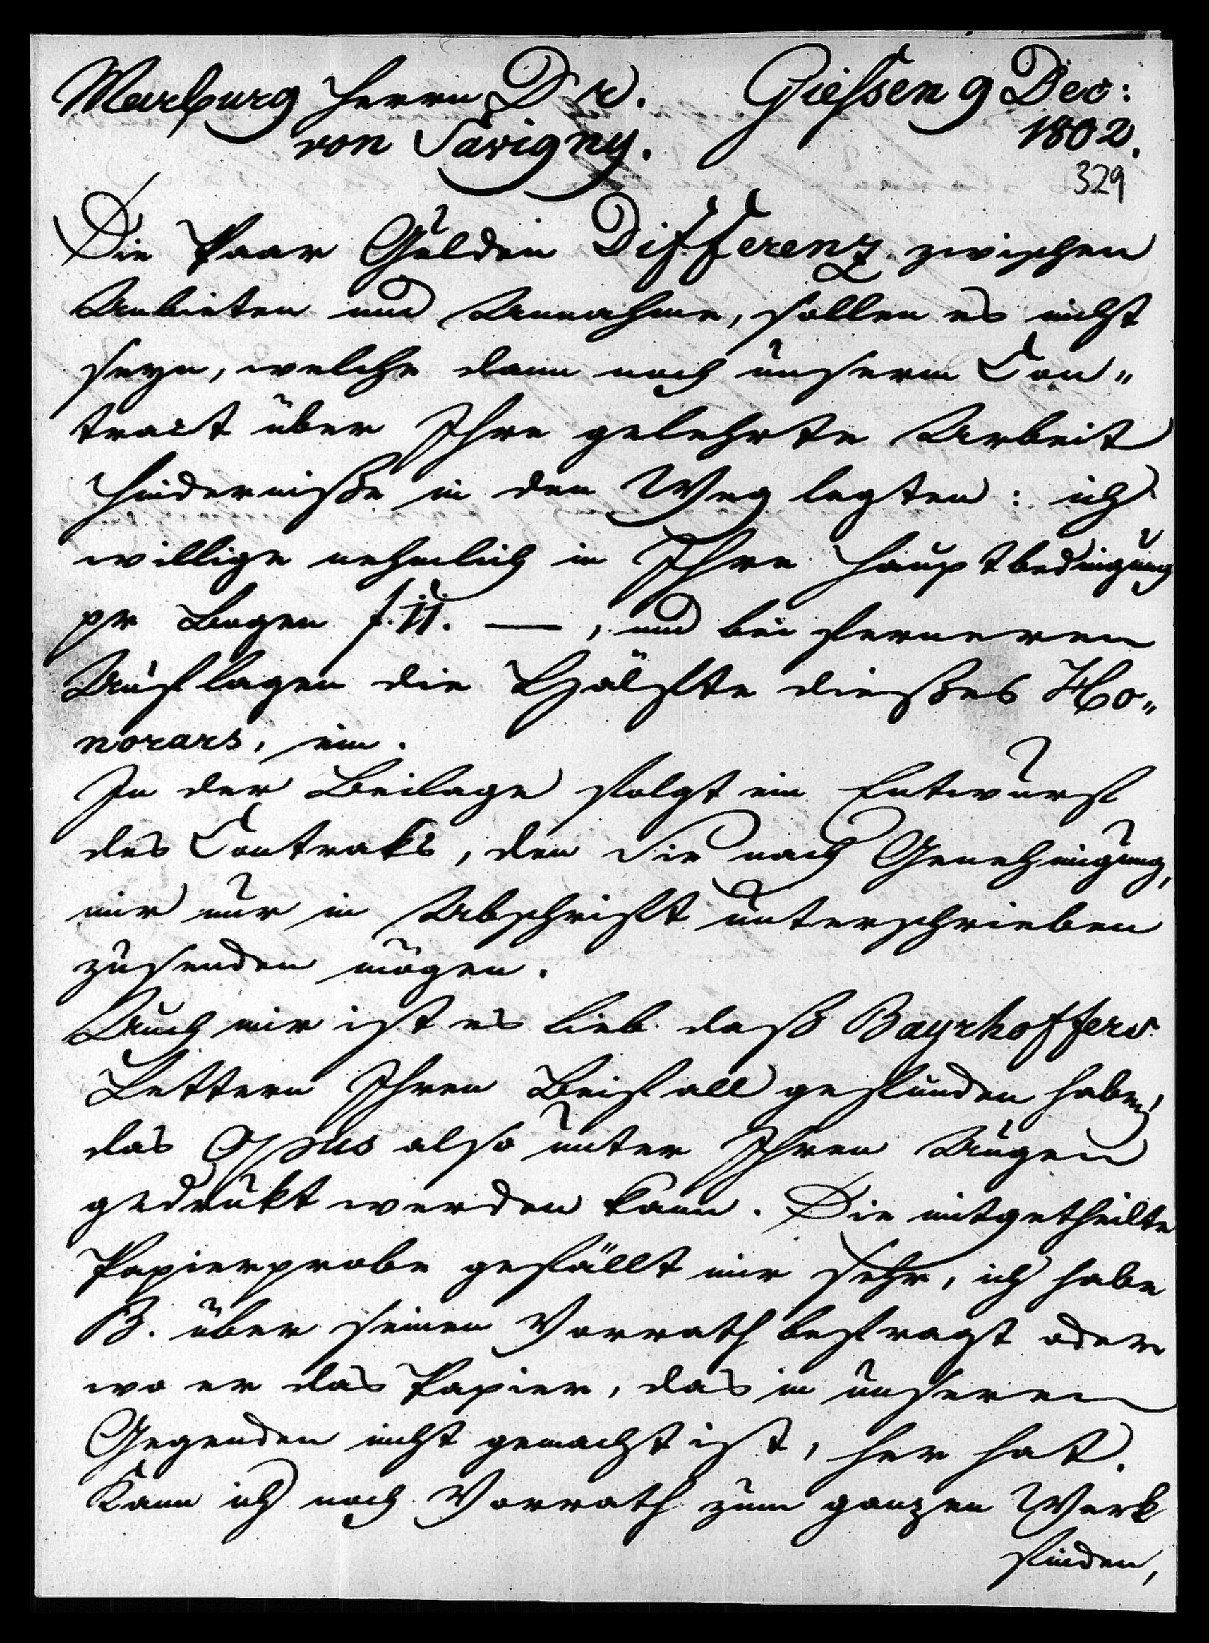 Marburg Herrn Dr. Giessen 9 Dec:
von Savigny. 1802.
329
Die Paar Gulden Differenz zwischen
Anbieten und Annahme, sollen es nicht
seyn, welche dann noch unserm Con„
tract über Ihre gelehrte Arbeit
Hinderniße in den Weg legten: ich
willige nehmlich in Ihre Hauptbedingung
pr Bogen f. 11. —, und bei ferneren
Auflagen die Hälfte dießes Ho„
norars, ein.
In der Beilage folgt ein Entwurf
des Contrakts, den Sie nach Genehmigung,
mir nur in Abschrift unterschrieben
zusenden mögen.
Auch mir ist es lieb daß Bayrhoffers
Lettern Ihren Beifall gefunden haben;
das Opus also unter Ihren Augen
gedrukt werden kann. Die mitgetheilte
Papierprobe gefällt mir sehr, ich habe
B. über seinen Vorrath befragt oder
wo er das Papier, das in unseren
Gegenden nicht gemacht ist, her hat.
Kann ich noch Vorrath zum ganzen Werk
finden,